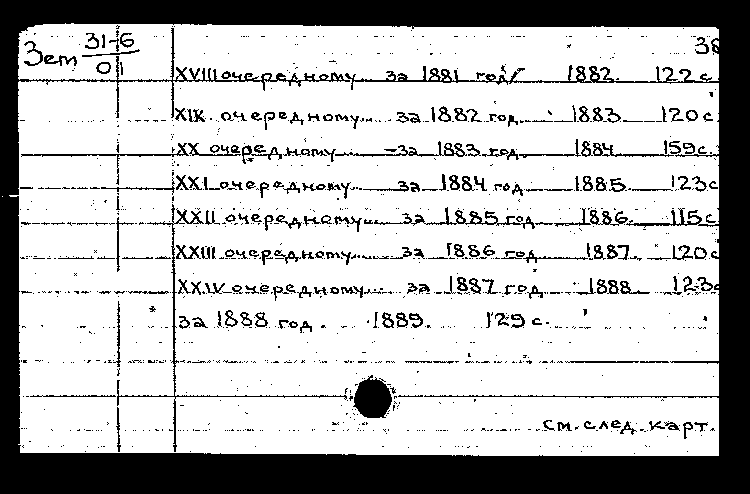 Зет 31-6
01
38
XVIII очередному... за 1881 год/ 1882. 122 с
XIX очередному... за 1882 год. 1883. 120 с
XX очередному... -за 1883 год. 1884. 159 с.
XXI очередному... за 1884 год 1885. 123 с
XXII очередному... за 1885 год 1886. 115 с
XXIII очередному... за 1886 год 1887. 120 с
XXIV очередному... за 1887 год 1888. 123 с
* за 1888 год. 1889. 129 с.
см. след. карт.